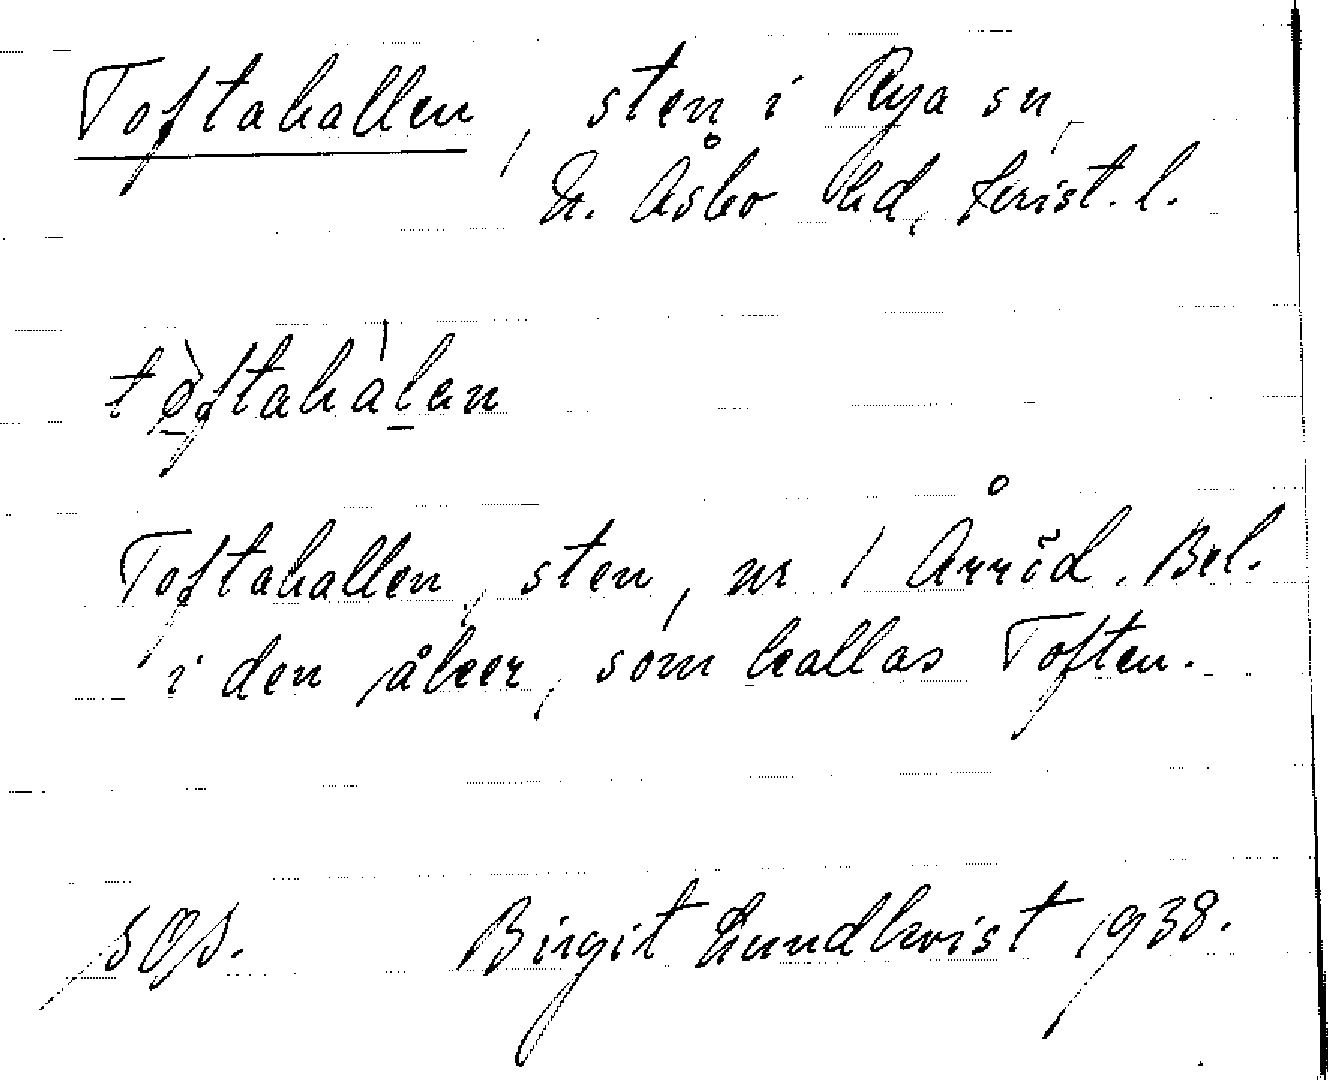 Toftahallen, sten i Rya sn,
N. Åsbo hd, Krist. l.
tòftahàlan
Toftahallen, sten, nr 1 Arröd. Bel.
i den åker, som kallas Toften.
SOS. Birgit Lundkvist 1938.